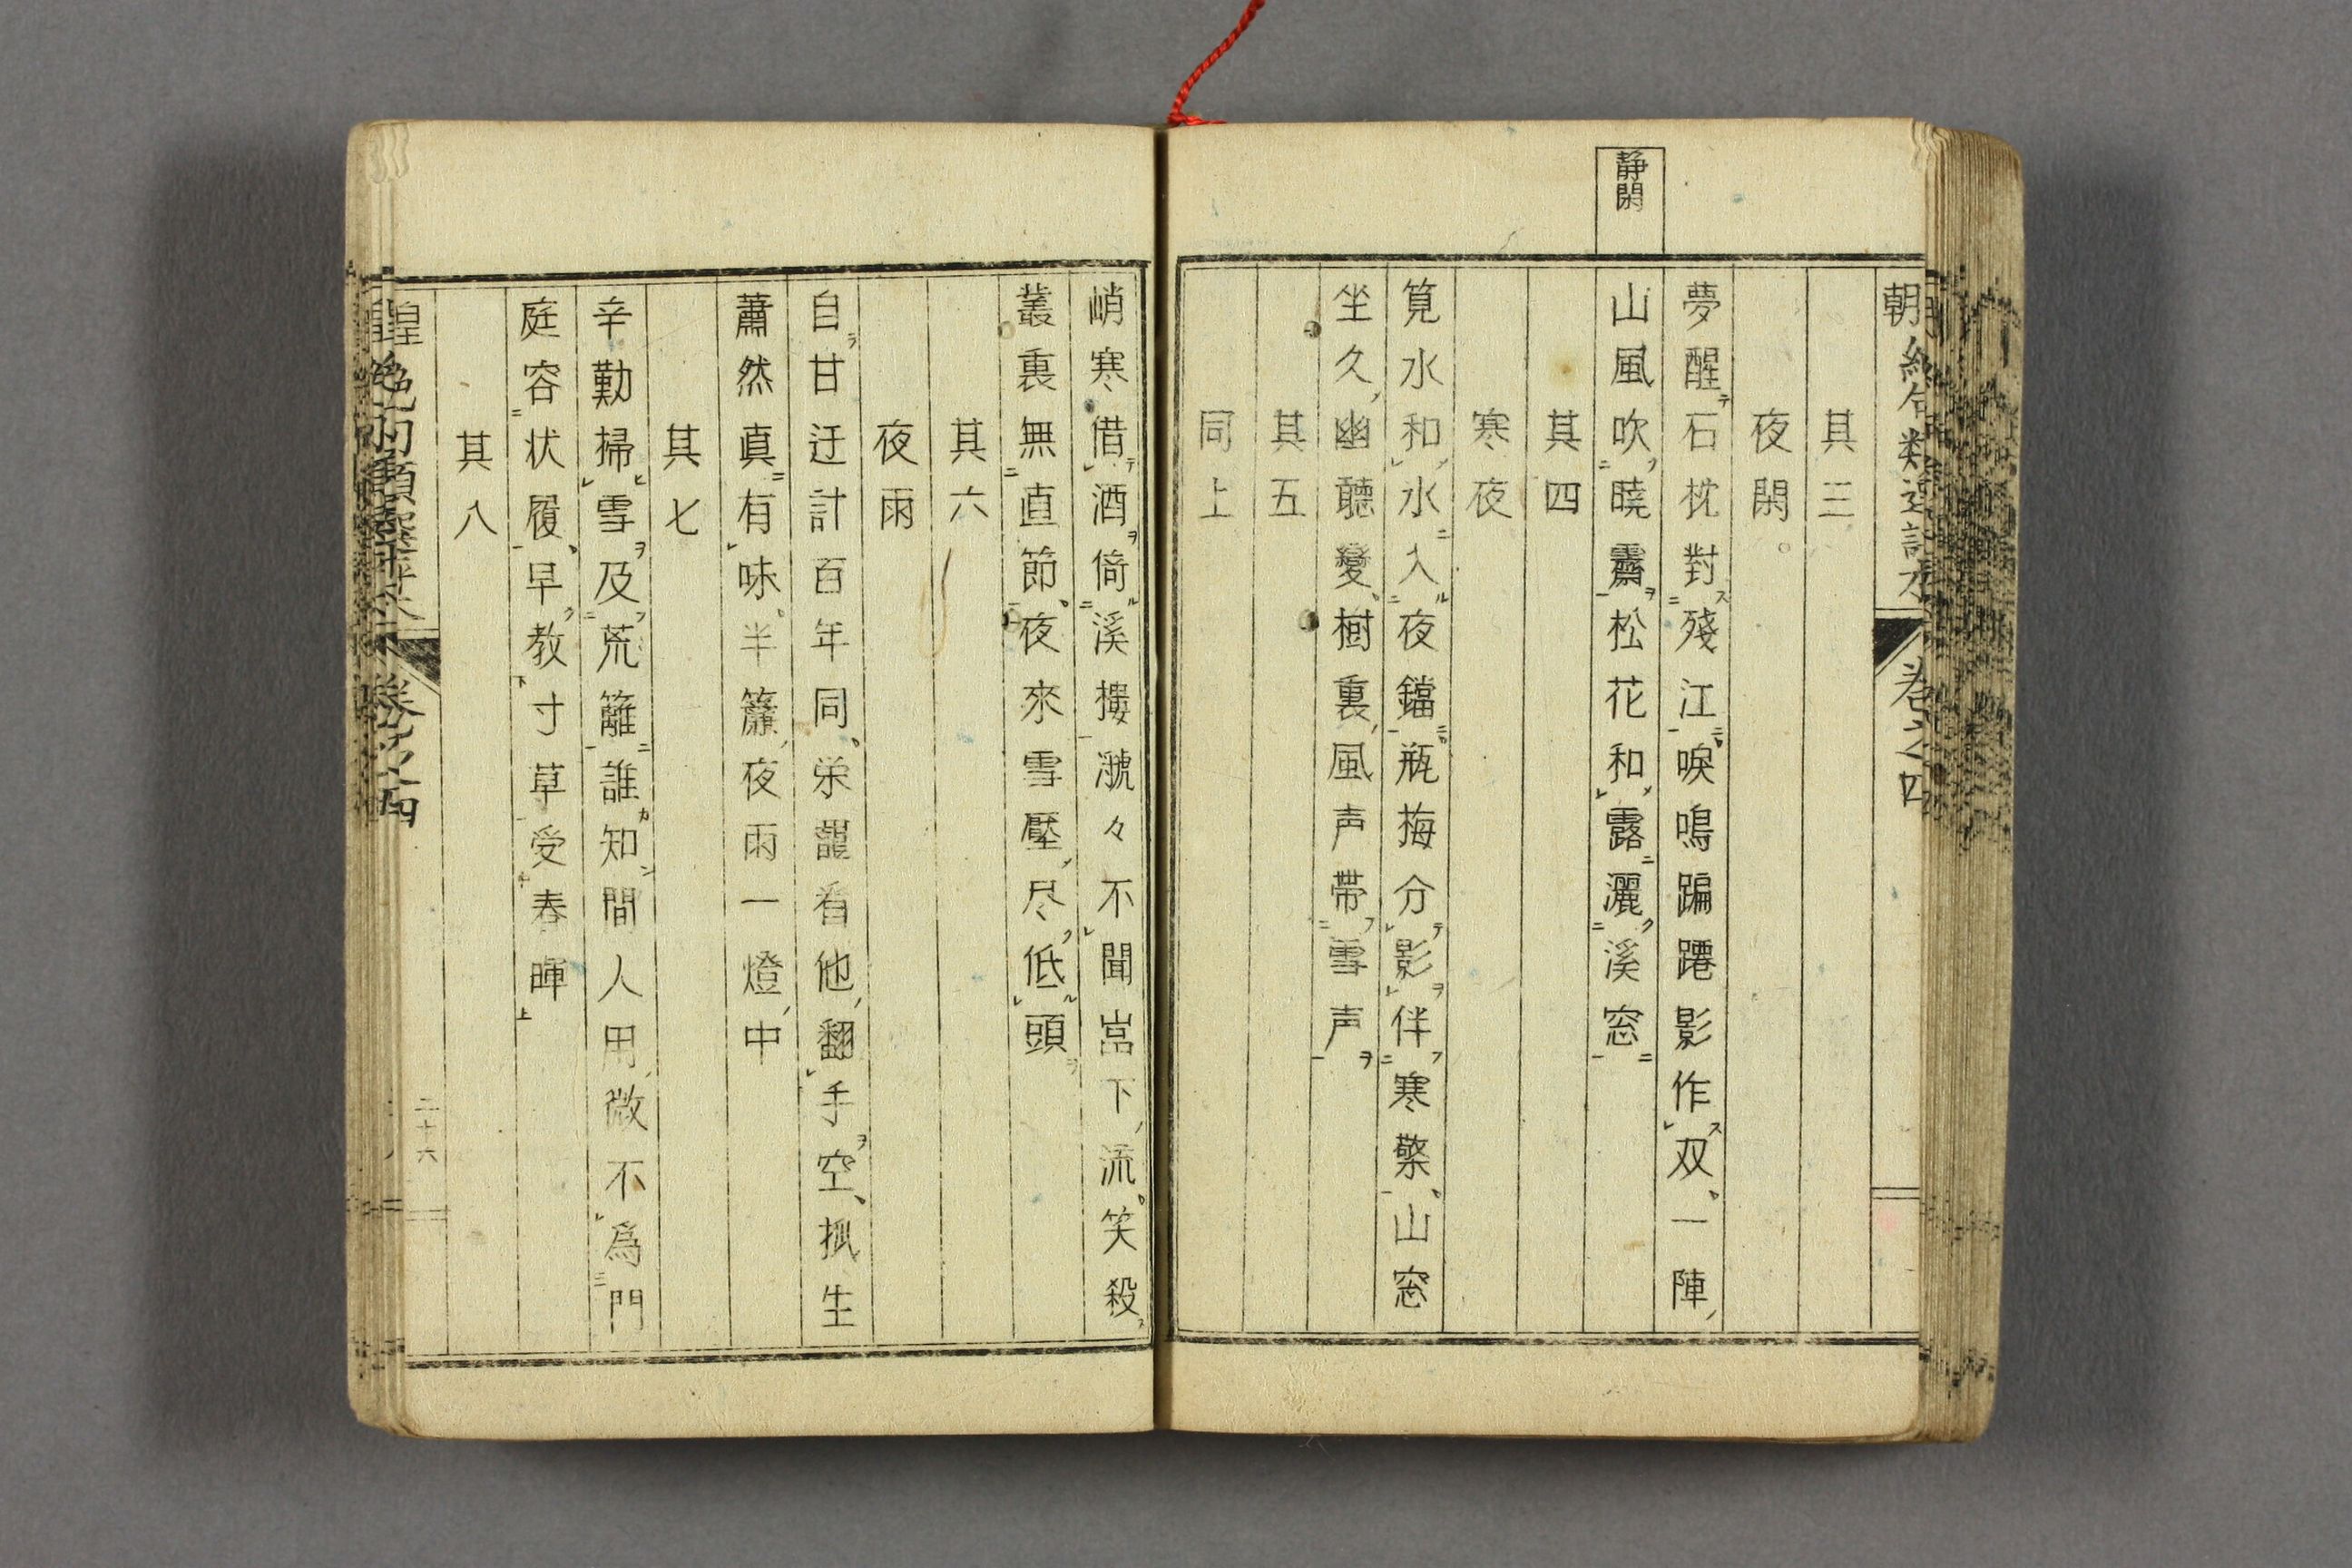 静閑
其三
夜閑。
夢醒テ石枕對ス殘江ニ唳鳴蹁躚影作ス双一陣
山風吹曉靄ヲ松花和露ニ灑ク溪窓ニ
其四
寒夜
筧水和水ニ入ル夜鐺ニ瓶梅分テ影ヲ伴フ寒檠山窓
坐久幽聽變樹裏風声帯フ雪声ヲ
其五
同上
峭寒借テ酒ヲ倚ル溪樓㶁々不聞嵓下流笑殺ス
叢裏無直節夜來雪壓尽ク低ル頭ヲ
其六
夜雨
自ラ甘迂計百年同栄 看他翻手ヲ空 生
蕭然真有味半簾夜雨一燈中
其七
辛勤掃ヒ雪ヲ及フ荒籬ニ誰カ知ン間人用微不為門
庭容状履早ク教寸草受春暉
其八
卷之四
二十六